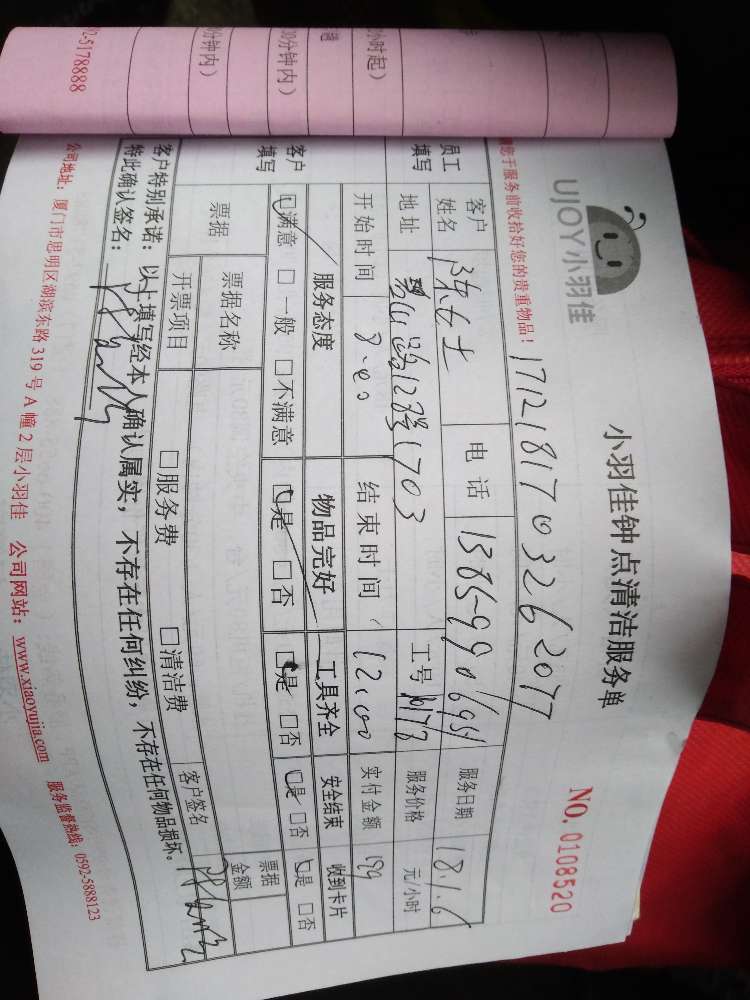 2-5178888
小时起)
30分钟内)
分钟内)
UJOY小羽佳
小羽佳钟点清洁服务单
NO. 0108520
您于服务前收拾好您的贵重物品!
1712181703262077
员工填写
客户姓名 陈女士 电话 服务日期 18.1.6
地址 工号 服务价格 元/小时
开始时间 结束时间 12:00 实付金额 199
客户填写
服务态度 物品完好 工具齐全 安全结束 收到卡片
☑满意 □一般 □不满意 ☑是 □否 ☑是 □否 ☑是 □否 ☑是 □否
票据 票据名称 票据金额
开票项目 □服务费 □清洁费 客户签名
客户特别承诺:以上填写经本人确认属实,不存在任何纠纷,不存在任何物品损坏。
特此确认签名:
公司地址:厦门市思明区湖滨东路319号A幢2层小羽佳 公司网站:www.xiaoyujia.com 服务监督热线:0592-5888123